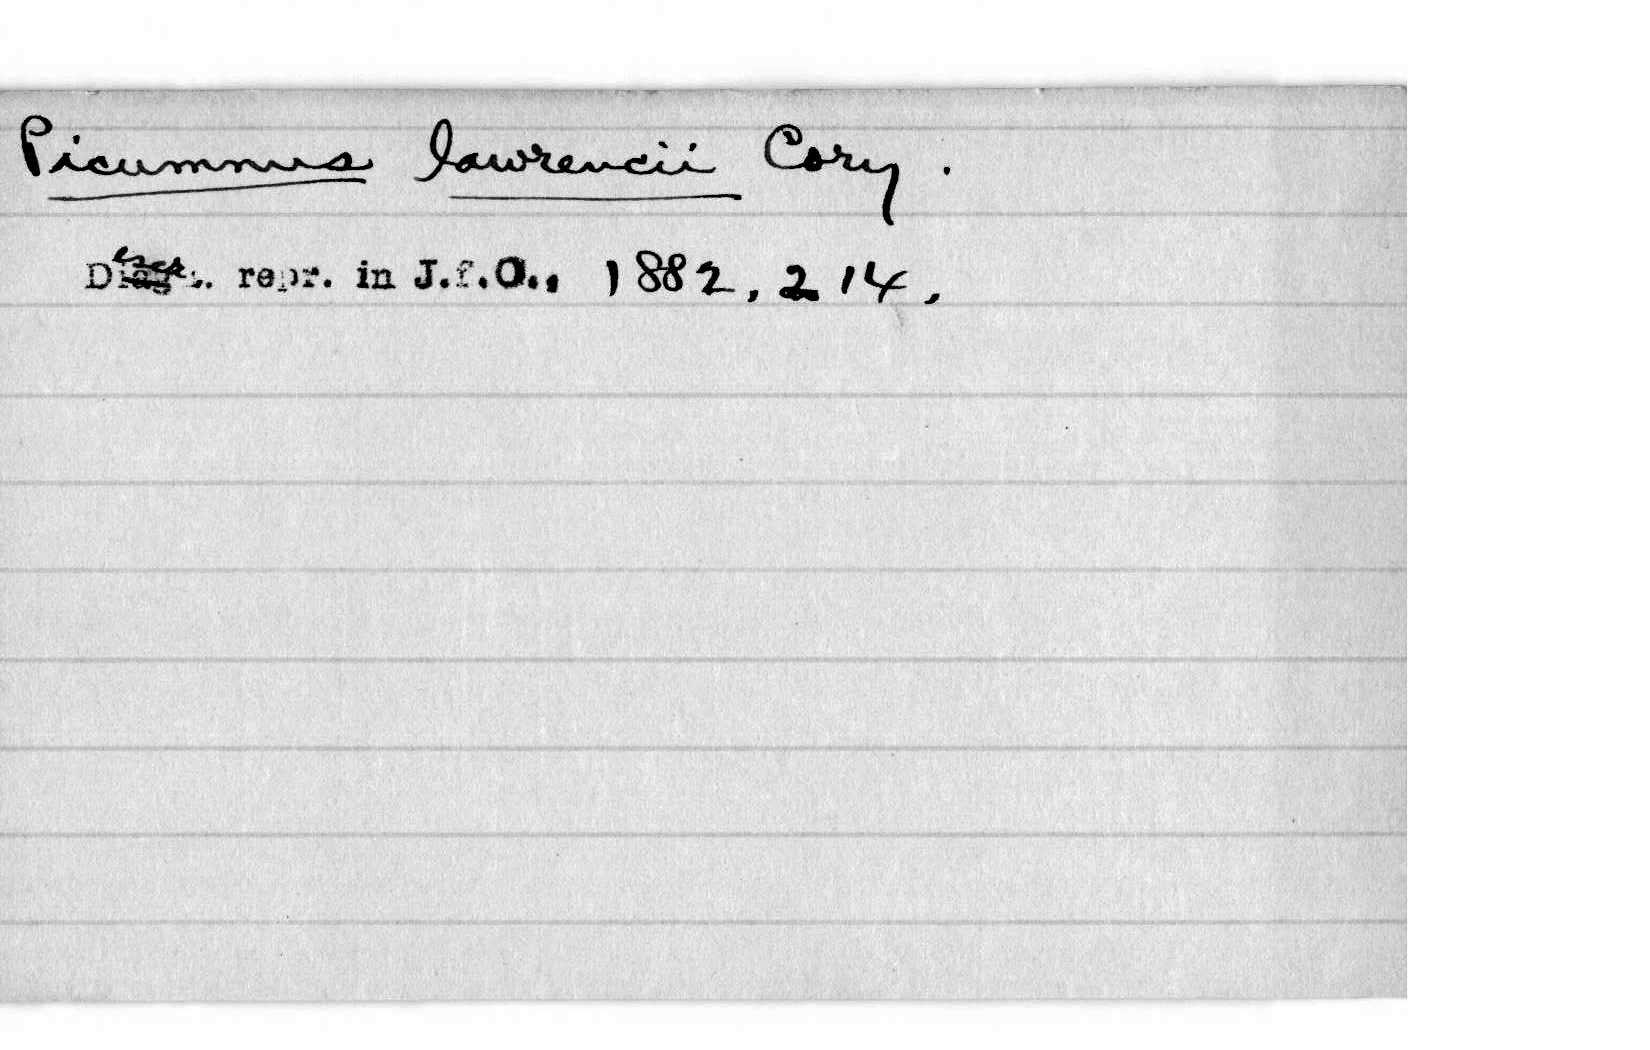 Picumnus lawrencii Cory.
Descr. repr. in J.f.O., 1882, 214,